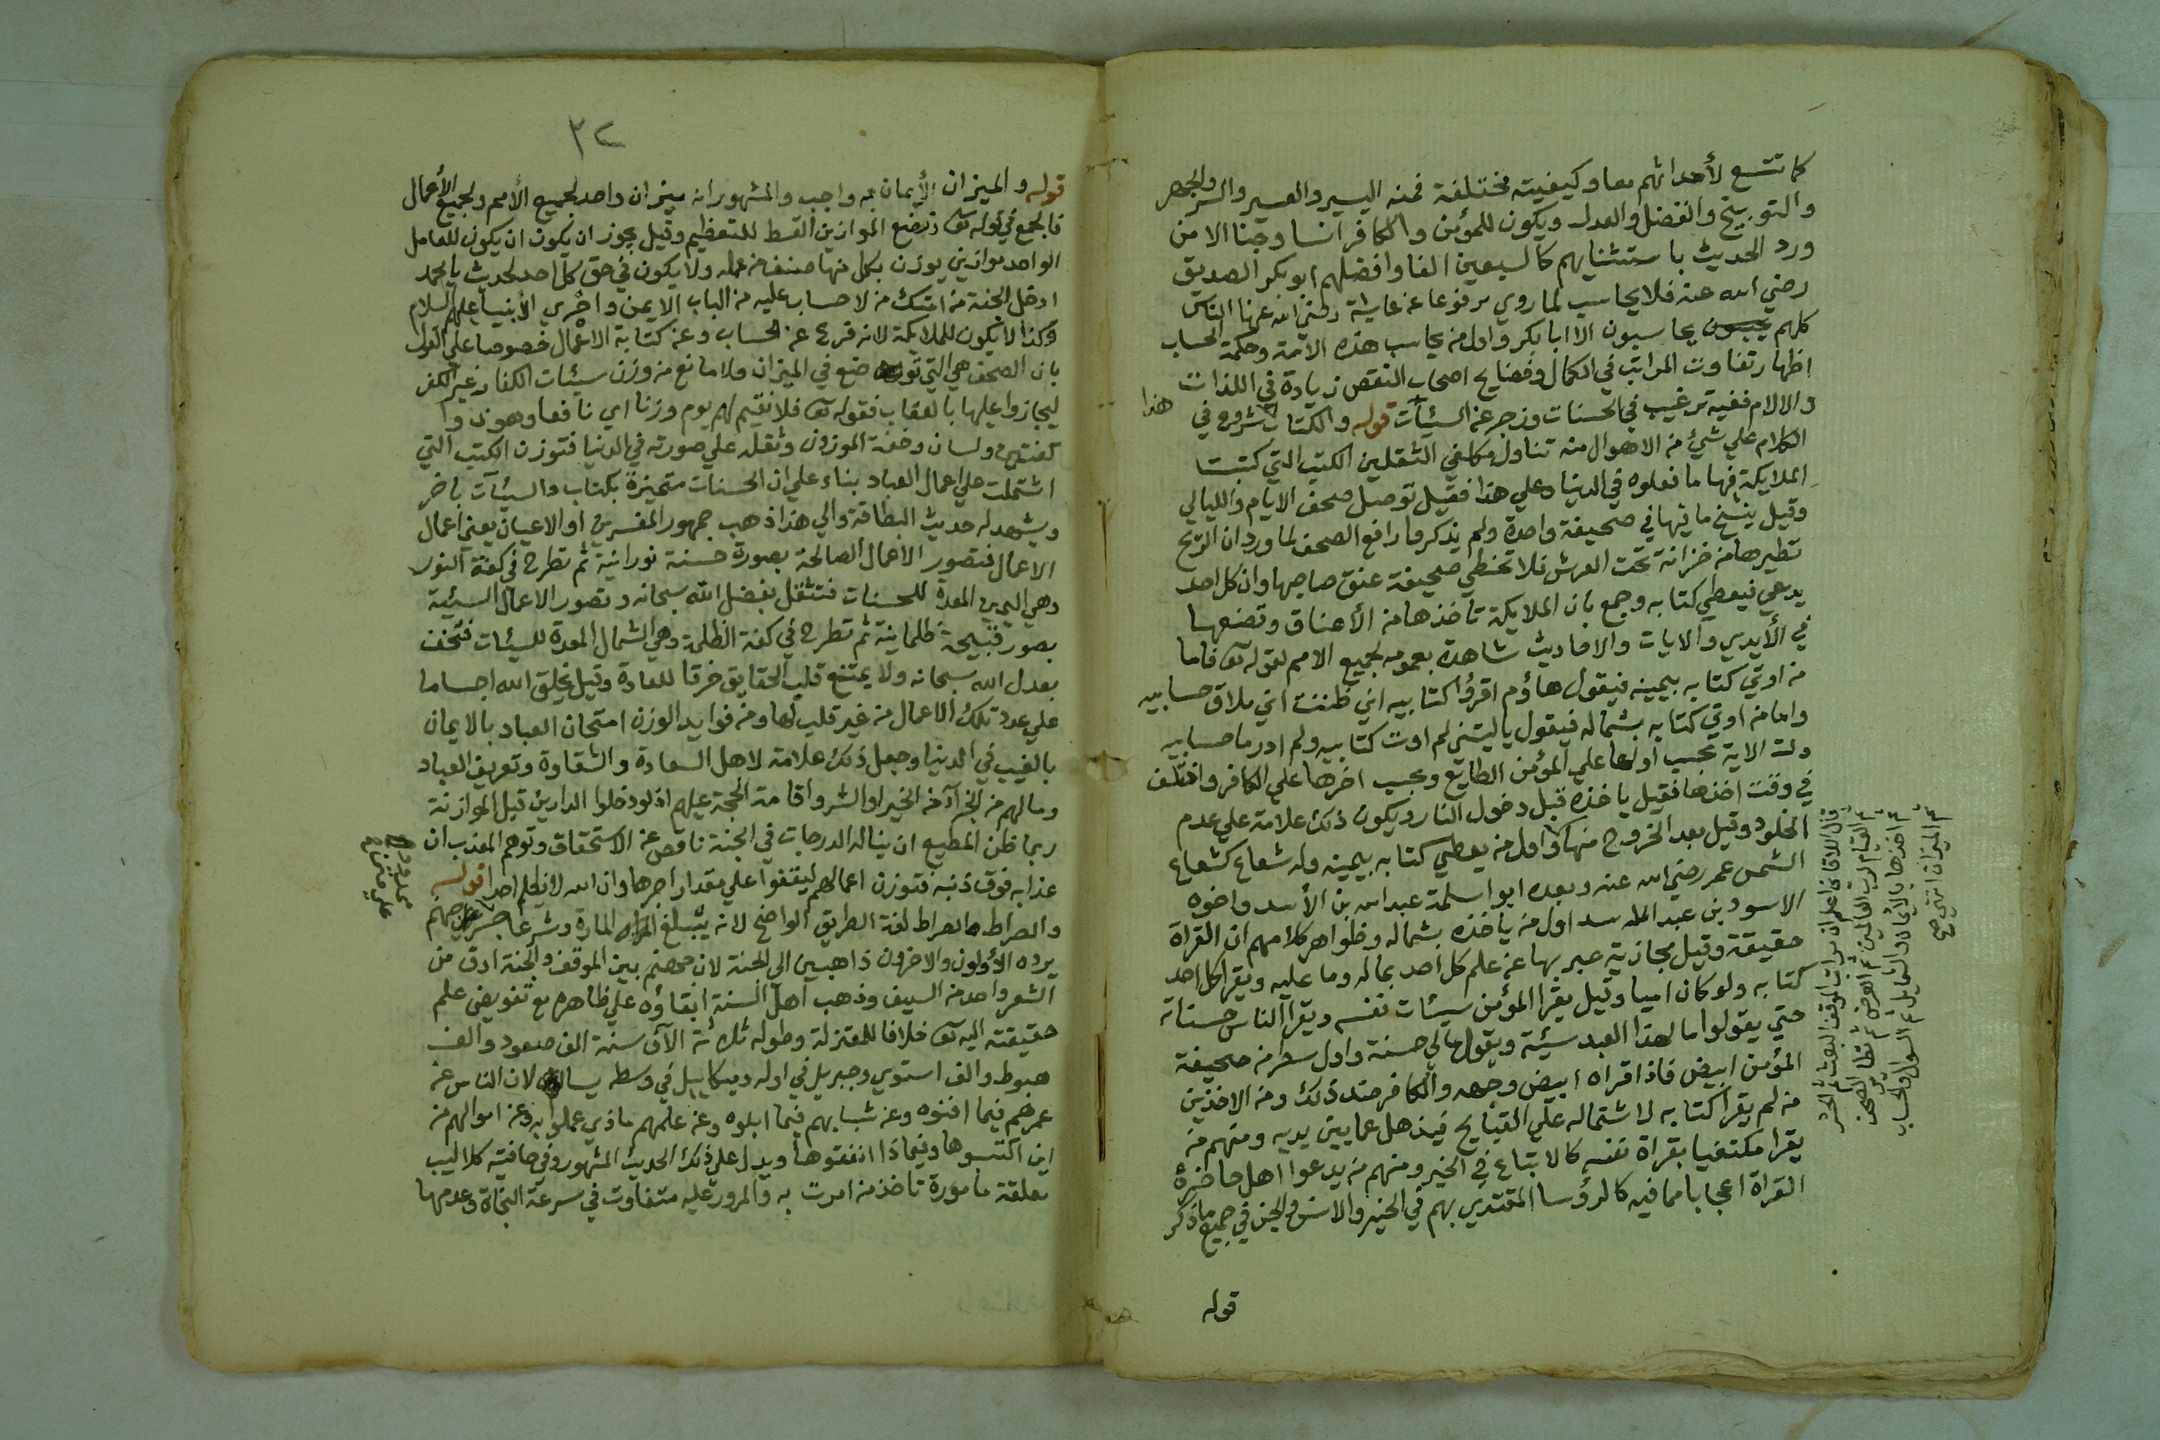 كما تتسع لأحداثهم معا وكيفيته مختلفة فمنه اليسير والعسير والسر والجهر
والتوبيخ والفضل والعدل ويكون للمؤمن والكافر انسا وجنا الا من
ورد الحديث باستثنايهم كالسبعين الفا وافضلهم ابو بكر الصديق
رضي الله عنه فلا يحاسب لما روي مرفوعا عن عايشة رضي الله عنها الناس
كلهم يحاسبون الا ابا بكر واول من يحاسب هذه الامة وحكمة الحساب
اظهار تفاوت المراتب في الكمال وفضايح اصحاب النقص زيادة في اللذات
والالام ففيه ترغيب في الحسنات وزجر عن السيئات قوله والكتاب شروع في
هذا
الكلام علي شيئ من الاهوال منه تناول مكلفي الثقلين الكتب التي كتبت
الملايكة فيها ما فعلوه في الدنيا وعلي هذا فقيل توصل صحف الايام والليالي
وقيل ينسخ ما فيها في صحيفة واحدة ولم يذكروا رافع الصحف لما ورد ان الريح
تطيرها من خزانة تحت العرش فلا تخطي صحيفة عنق صاحبها وان كل احد
يدعي فيعطي كتابه وجمع بان الملايكة تاخذها من الأعناق وتضعها
في الأيدي والايات والاحاديث شاهدة بعمومه لجميع الامم لقوله تع فاما
من اوتي كتابه بيمينه فيقول هاؤم اقرؤا كتابيه اني ظننت اني ملاق حسابيه
واما من اوتي كتابه بشماله فيقول ياليتني لم اوت كتابيه ولم ادر ما حسابيه
دلت الاية بحسب اولها علي المؤمن الطايع وبحسب اخرها علي الكافر واختلف
في وقت اخذها فقيل ياخذه قبل دخول النار ويكون ذلك علامة علي عدم
الخلود وقيل بعد الخروج منها واول من يعطي كتابه بيمينه وله شعاع كشعاع
الشمس عمر رضي الله عنه وبعده ابو اسلمة عبد الله بن الأسد واخوه
الاسود بن عبد الاسد اول من ياخذه بشماله وظواهر كلامهم ان القراة
حقيقة وقيل مجازية عبر بها عن علم كل احد بماله وما عليه ويقرا كل احد
كتابه ولو كان اميا وقيل يقرا المؤمن سيئات نفسه ويقرا الناس حسناته
حتي يقولوا ما لهذا العبد سيئة ويقول مالي حسنة واول سطر من صحيفة
المؤمن ابيض فاذا قراه ابيض وجهه والكافر ضد ذلك ومن الاخذين
من لم يقرا كتابه لاشتماله علي القبايح فيذهل عما بين يديه ومنهم من
يقرا مكتفيا بقراة نفسه كالاتباع في الخير ومنهم من يدعوا اهل حاضره
القراة اعجابا مما فيه كالرؤسا المقتدي بهم في الخير والانس والجن في جميع ما ذكر
قوله
قال اللاقاني اعلم ان مراتب الموقف البعث ثم الحشر
ثم القيام لرب العالمين ثم العرض ثم تطاير الصحف
ثم اخذها بالايمان والشمايل ثم السؤال والحساب
ثم الميزان انتهي صح
٣٢
قوله والميزان الأيمان به واجب والمشهور انه ميزان واحد لجميع الأمم ولجميع الأعمال
فالجمع في قوله تع ونضع الموازين القسط للتعظيم وقيل يجوز ان يكون للعامل
الواحد موازين يوزن بكل منها صنف من عمله ولا يكون في حق كل احد لحديث يا محمد
ادخل الجنة من امتك من لا حساب عليه من الباب الايمن واحري الأنبياء عليهم السلام
وكذا لا يكون للملايكة لانه فرع عن الحساب وعن كتابة الاعمال خصوصا علي القول
بان الصحف هي التي توضع في الميزان ولا مانع من وزن سيئات الكفار غير الكفر
ليجازوا عليها بالعقاب فقوله تع فلا نقيم لهم يوم وزنا اي نافعا وهو ذوا
كفتين ولسان وخفة الموزون وثقله علي صورته في الدنيا فتوزن الكتب التي
اشتملت علي اعمال العباد بناء علي ان الحسنات متميزة بكتاب والسيئات باخر
ويشهد له حديث البطاقة والي هذا ذهب جمهور المفسرين او الاعيان يعني اعمال
الاعمال فتصور الاعمال الصالحة بصورة حسنة نورانية ثم تطرح في كفة النور
وهي اليمين المعدة للحسنات فتثقل بفضل الله سبحانه وتصور الاعمال السيئة
بصور قبيحة ظلمانية ثم تطرح في كفة الظلمة وهي الشمال المعدة للسيئات فتخف
بعدل الله سبحانه ولا يمتنع قلب الحقايق خرقا للعادة وقيل يخلق الله اجساما
علي عدد تلك الاعمال من غير قلب لها ومن فوايد الوزن امتحان العباد بالايمان
بالغيب في الدنيا وجعل ذلك علامة لاهل السعادة والشقاوة وتعريف العباد
ومالهم من الجزاء من الخير او الشر واقامة الحجة عليهم اذ لو دخلوا الدارين قبل الموازنة
ربما ظن المطيع ان يناله الدرجات في الجنة ناقص عن الاستحقاق وتوهم المعذب ان
عذابه فوق ذنبه فتوزن اعمالهم ليقفوا علي مقدار اجرها وان الله لا يظلم احدا قوله
والصراط والصراط لغة الطريق الواضح لانه يبلع المارة وشرعا جسر جهنم
ممدود علي متن
يرده الأولون والاخرون ذاهبين الي الجنة لان جهنم بين الموقف والجنة ادق من
الشعر واحد من السيف وذهب اهل السنة ابقاؤه علي ظاهره مع تفويض علم
حقيقته اليه تع خلافا للمعتزلة وطوله ثلاثة الآف سنة الف صعود والف
هبوط والف استوي وجبريل في اوله وميكاييل في وسطه يسالون لان الناس عن
عمرهم فيما افنوه وعن شبابهم فيما ابلوه وعن علمهم ماذي عملوا به وعن اموالهم من
اين اكتسبوها وفيماذا انفقوها ويدل علي ذلك الحديث المشهور وفي حافيته كلاليب
معلقة مامورة تاخذ من امرت به والمرور عليه متفاوت في سرعة النجاة وعدمها